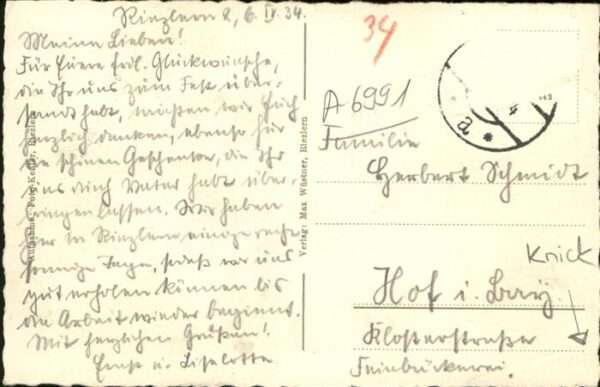 Riezlern 2, 6. IV. 34.
Meine Lieben!
Für Euere frdl. Glückwünsche,
die Ihr uns zum Fest über-
sandt habt, möchten wir Euch
herzlich danken, ebenso für
die schönen Geschenke, die Ihr
uns durch Vater habt über-
bringen lassen. Wir haben
hier in Riezlern einige recht
sonnige Tage, sodaß wir uns
gut erholen können bis
die Arbeit wieder beginnt.
Mit herzlichen Grüßen!
Ernst u. Liselotte
Verlag: Max Wüstner, Riezlern
34
A 6991
Familie
Herbert Schmidt
Knick
Hof i. Bay.
Klosterstraße
Feinbäckerei.